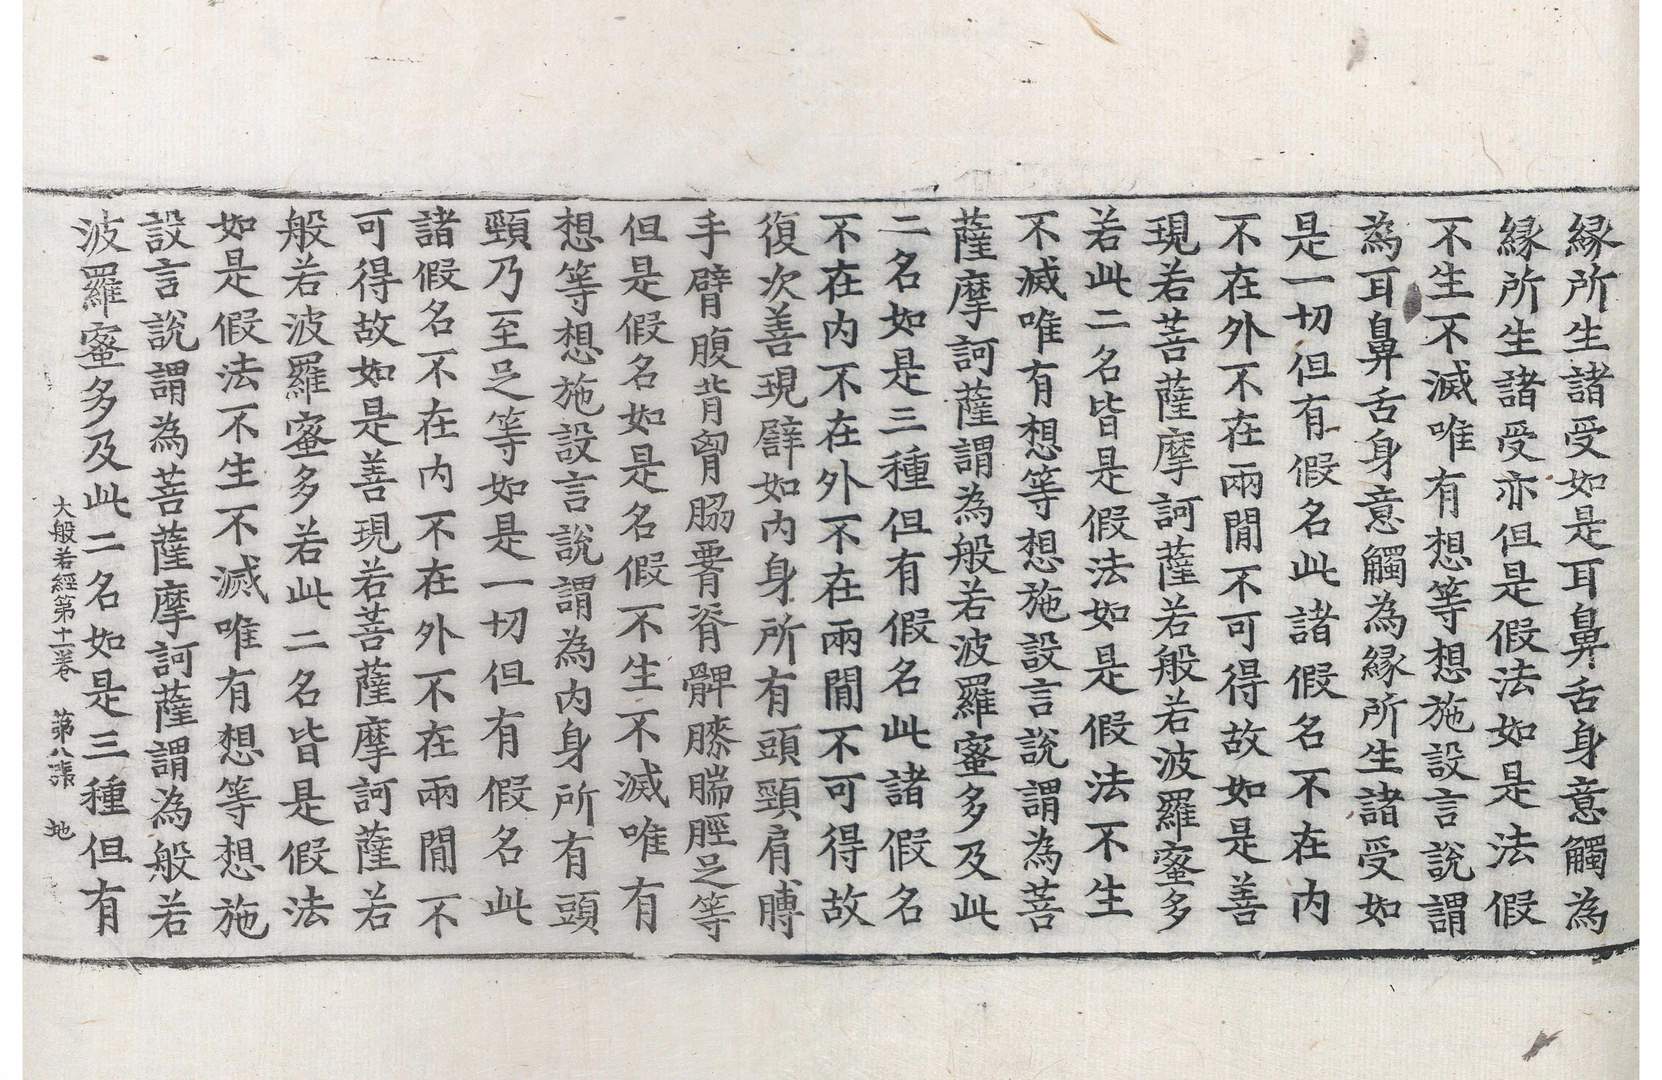 縁所生諸受如是耳鼻舌身意觸為
縁所生諸受亦但是假法如是法假
不生不滅唯有想等想施設言說謂
為耳鼻舌身意觸為縁所生諸受如
是一切但有假名此諸假名不在内
不在外不在兩閒不可得故如是善
現若菩薩摩訶薩若般若波羅蜜多
若此二名皆是假法如是假法不生
不滅唯有想等想施設言說謂為菩
薩摩訶薩謂為般若波羅蜜多及此
二名如是三種但有假名此諸假名
不在内不在外不在兩閒不可得故
復次善現譬如内身所有頭頸肩膊
手臂腹背胷脇腰脊髀膝腨脛足等
但是假名如是名假不生不滅唯有
想等想施設言說謂為内身所有頭
頸乃至足等如是一切但有假名此
諸假名不在内不在外不在兩閒不
可得故如是善現若菩薩摩訶薩若
般若波羅蜜多若此二名皆是假法
如是假法不生不滅唯有想等想施
設言說謂為菩薩摩訶薩謂為般若
波羅蜜多及此二名如是三種但有
大般若經第十一卷 第八張 地